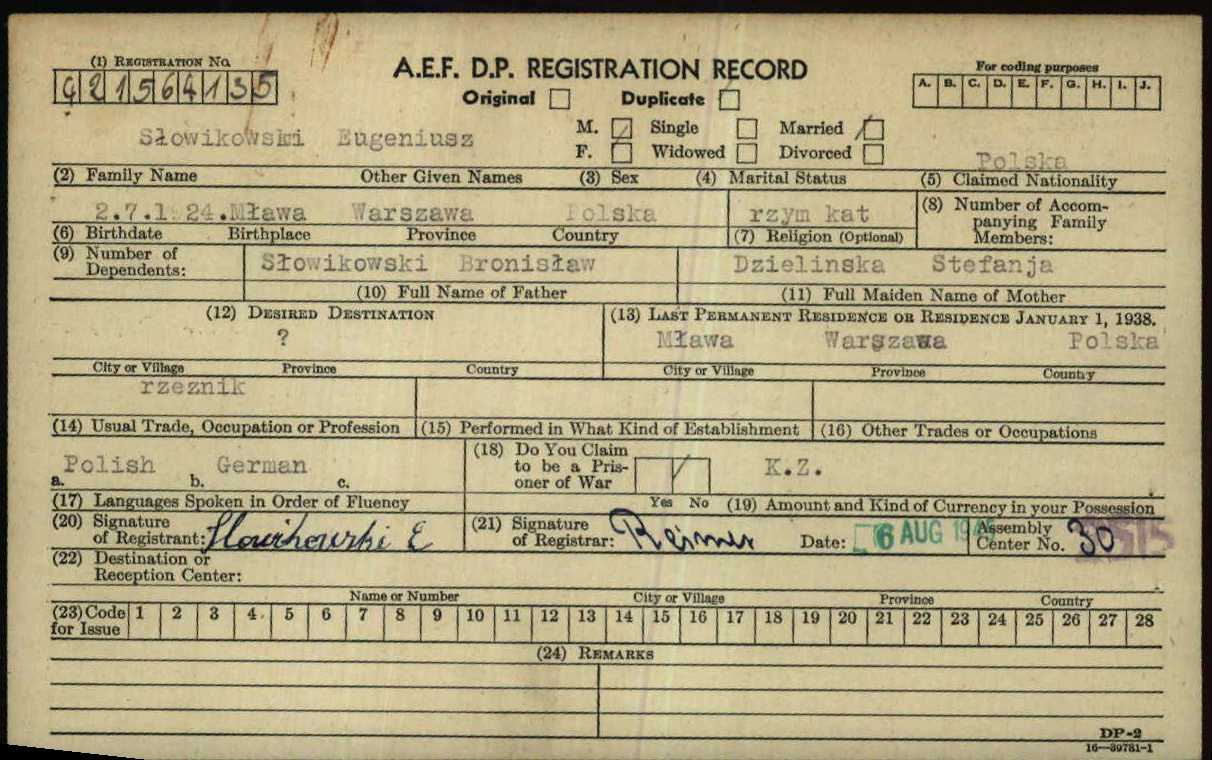 (1) REGISTRATION No.
A.E.F. D.P. REGISTRATION RECORD
For coding purposes
G21564135
A. B. C. D. E. F. G. H. I. J.
Original Duplicate
Słowikowski Eugeniusz
M. Single Married
F. Widowed Divorced
Polska
(2) Family Name Other Given Names (3) Sex (4) Marital Status (5) Claimed Nationality
2.7.1924.Mława Warszawa Polska rzym kat
(8) Number of Accompanying Family Members:
(6) Birthdate Birthplace Province Country (7) Religion (Optional)
(9) Number of Dependents:
Słowikowski Bronisław Dzielinska Stefanja
(10) Full Name of Father (11) Full Maiden Name of Mother
(12) DESIRED DESTINATION (13) LAST PERMANENT RESIDENCE OR RESIDENCE JANUARY 1, 1938.
? Mława Warszawa Polska
City or Village Province Country City or Village Province Country
rzeznik
(14) Usual Trade, Occupation or Profession (15) Performed in What Kind of Establishment (16) Other Trades or Occupations
Polish German
a. b. c.
(18) Do You Claim to be a Prisoner of War
K.Z.
(17) Languages Spoken in Order of Fluency Yes No (19) Amount and Kind of Currency in your Possession
(20) Signature of Registrant: Słowikowski E
(21) Signature of Registrar: Reimer Date: 6 AUG Assembly Center No. 30
(22) Destination or Reception Center:
Name or Number City or Village Province Country
(23) Code for Issue 1 2 3 4 5 6 7 8 9 10 11 12 13 14 15 16 17 18 19 20 21 22 23 24 25 26 27 28
(24) REMARKS
DP-2
16—39781-1